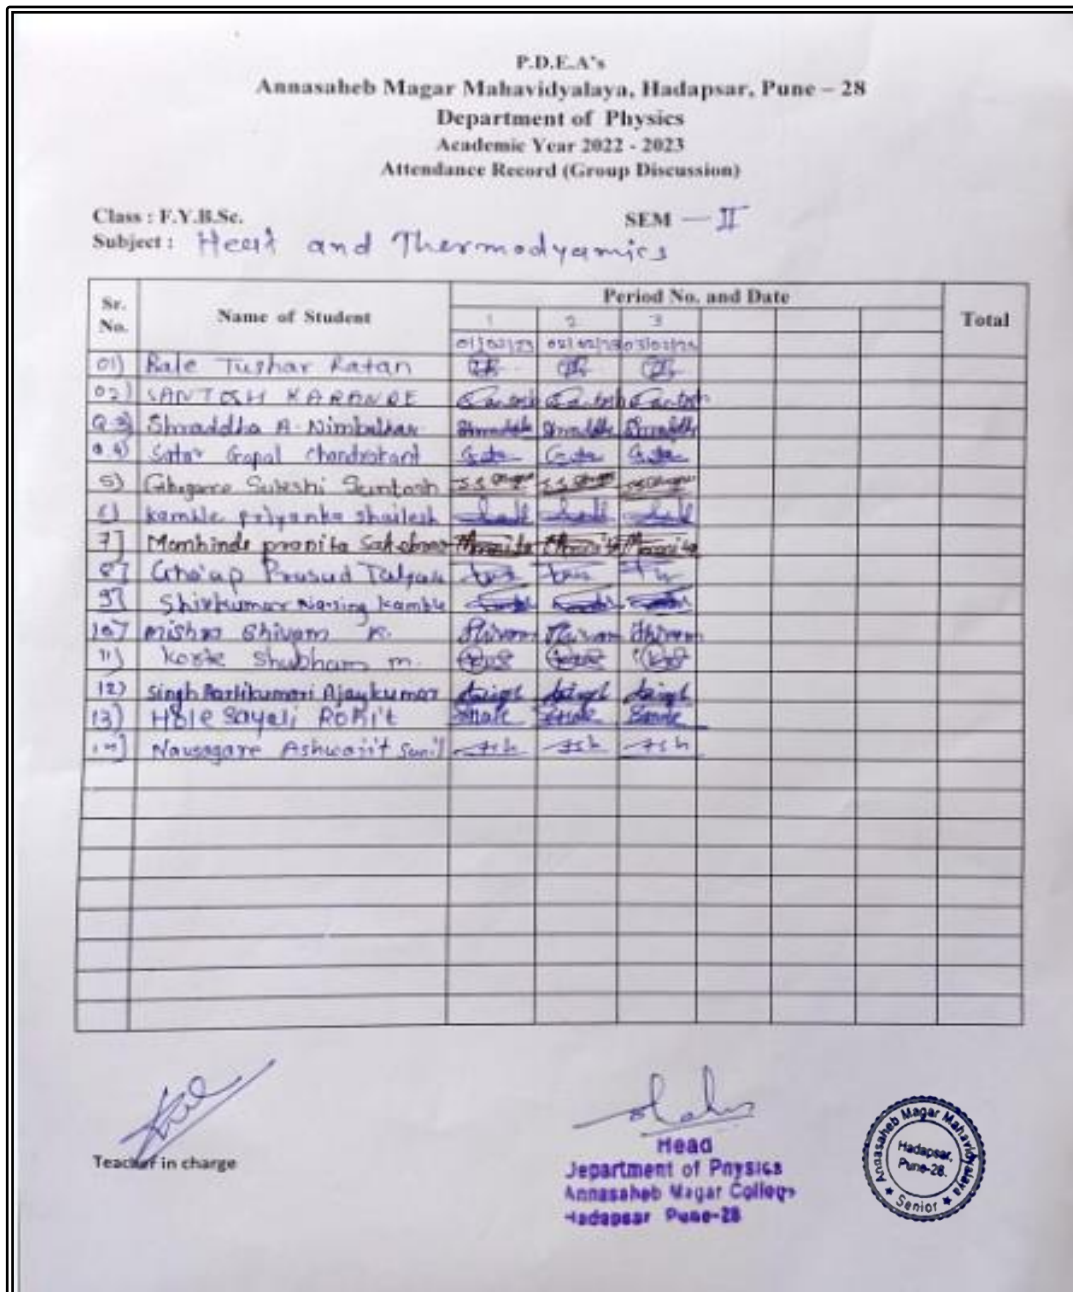 P.D.E.A's
Annasaheb Magar Mahavidyalaya, Hadapsar, Pune – 28
Department of Physics
Academic Year 2022 - 2023
Attendance Record (Group Discussion)
Class : F.Y.B.Sc. SEM — II
Subject : Heat and Thermodyamics
Sr. No. Name of Student Period No. and Date Total
1 2 3
01/02/23 02/02/23 03/02/23
01) Bale Tushar Ratan
02) SANTOSH KARANDE Santosh Santosh Santosh
03) Shraddha A. Nimbalkar Shraddha Shraddha Shraddha
04) Gopal Chandrakant
5) Santosh
6) kamble priyanka shailesh
7] pranita
8] Prasad
9] Shivkumar Narsing kamble
10] mishra Shivam K. Shivam Shivam Shivam
11) Shubham m.
12) Singh Ajaykumar Singh Singh Singh
13) Hole Sayali Rohit
14) Ashwajit Sunil Ash Ash Ash
Teacher in charge
Head
Department of Physics
Annasaheb Magar College
Hadapsar Pune-28
Annasaheb Magar Mahavidyalaya
Hadapsar,
Pune-28.
★ Senior ★